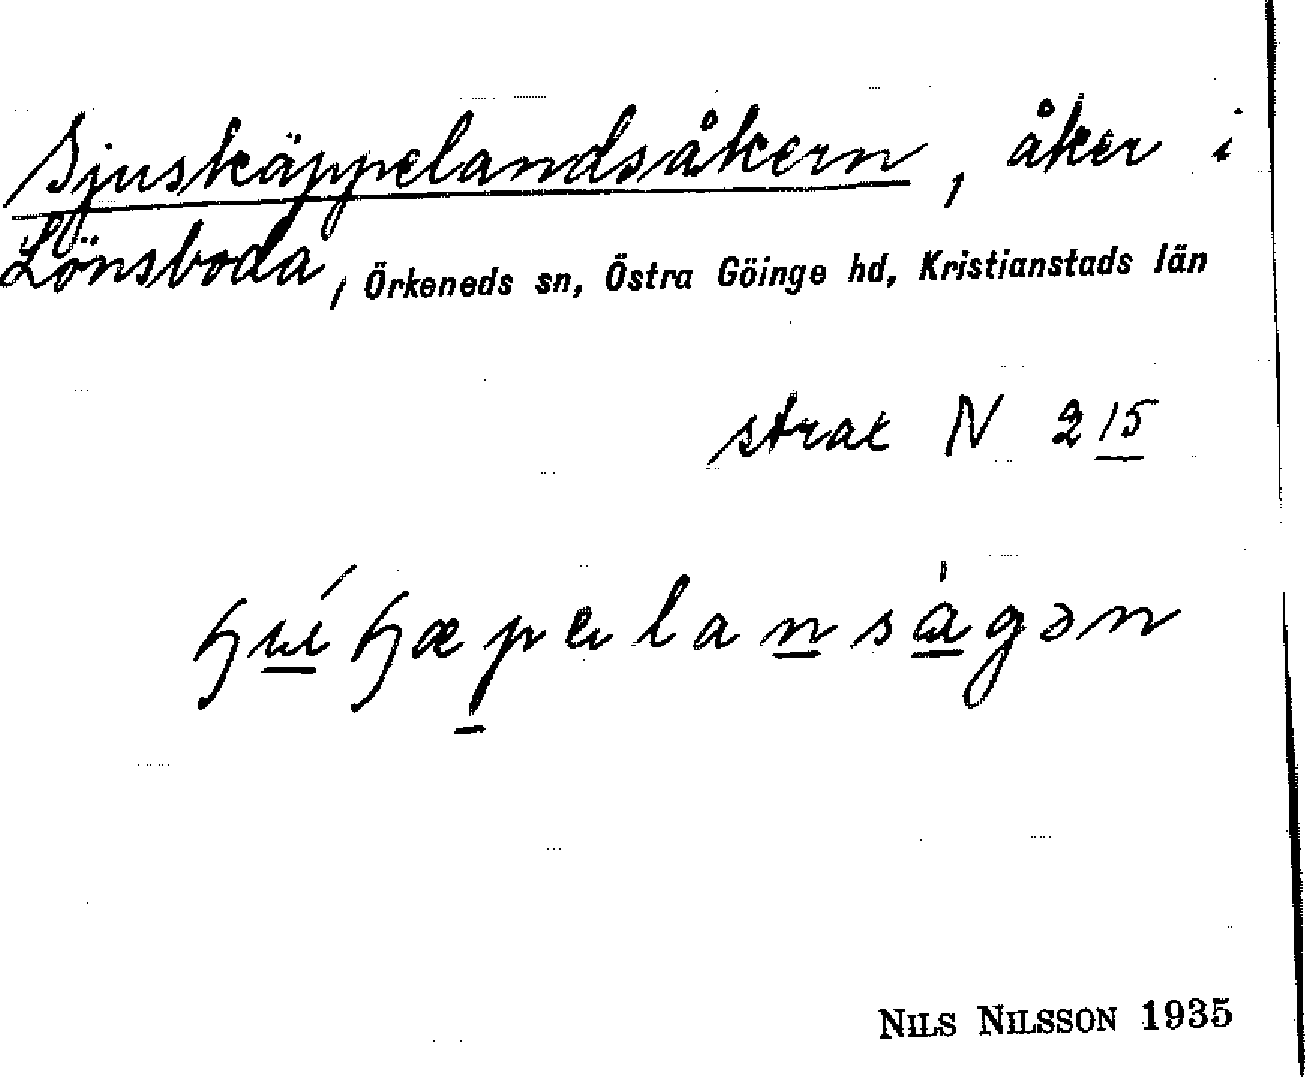 Sjuskäppelandsåkern, åker i
Lönsboda, Örkeneds sn, Östra Göinge hd, Kristianstads län
strax N 215
Nils Nilsson 1935